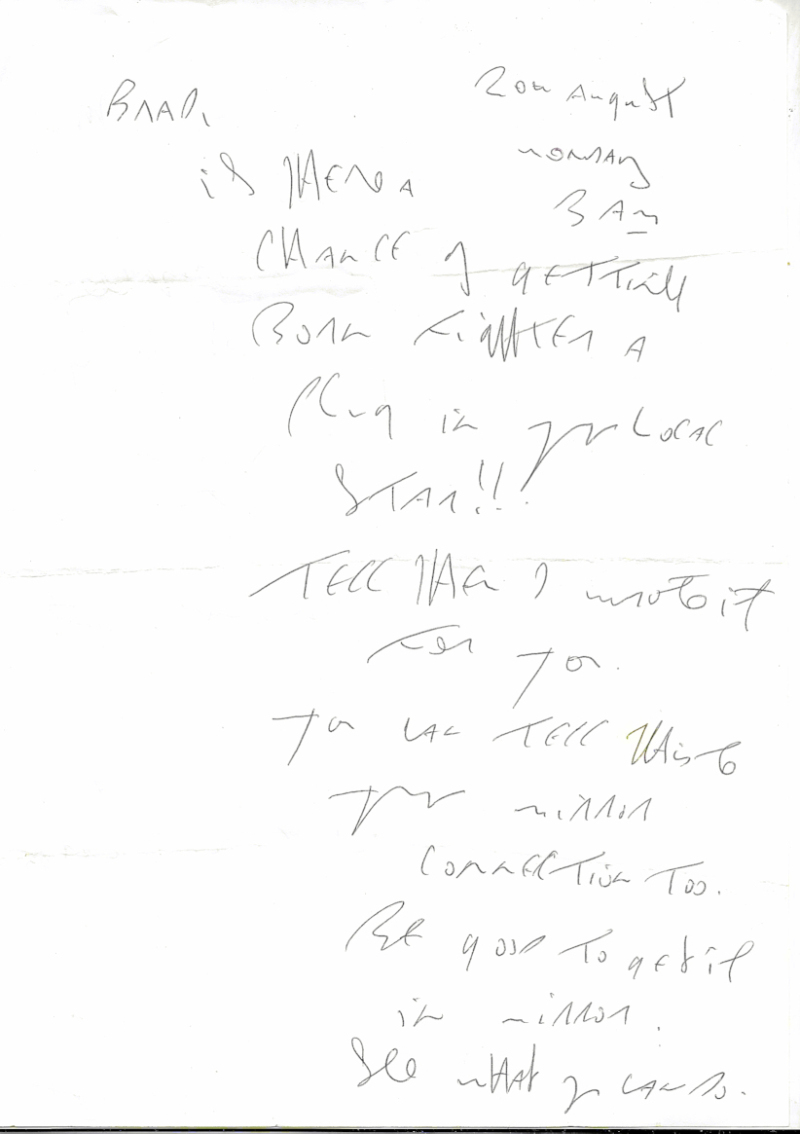 BRAD,
20th August
MONDAY
8 AM
is THERE A
CHANCE of GETTING
BORN FIGHTER A
PLug in your LOCAL
STAR!!
TELL THEM I wrote it
FOR you.
you CAN TELL THIS to
your mirror
CONNECTION TOO.
BE good To get it
in mirror.
See wHAT you CAN DO.